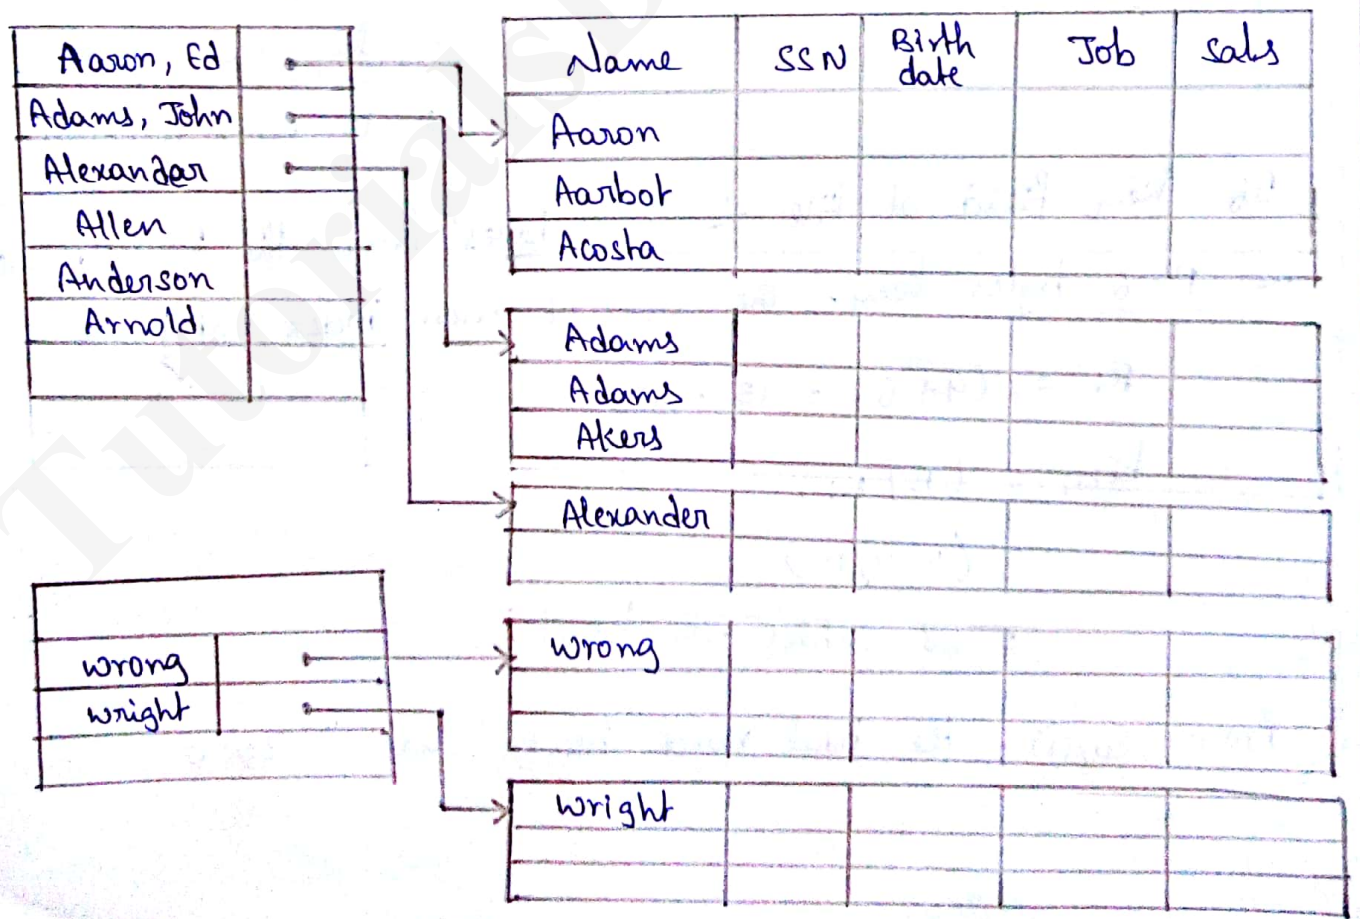 Aaron, Ed
Adams, John
Alexander
Allen
Anderson
Arnold.
wrong
wright
Name SSN Birth date Job Sals
Aaron
Aarbot
Acosta
Adams
Adams
Akers
Alexander
wrong
wright